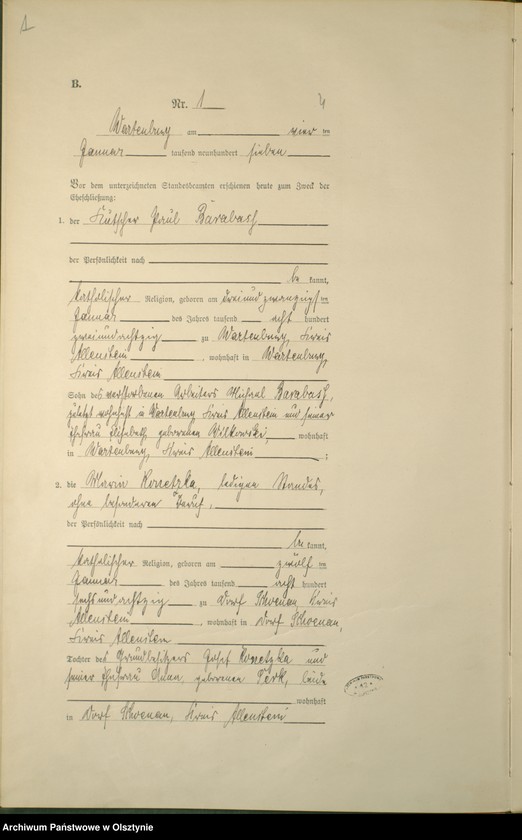 1
B.
Nr. 1
Wartenburg am vier ten
Januar tausend neunhundert sieben
Vor dem unterzeichneten Standesbeamten erschienen heute zum Zweck der
Eheschließung:
1. der Kutscher Paul Barabasch
der Persönlichkeit nach
be kannt,
katholischer Religion, geboren am dreiundzwanzigsten
Januar des Jahres tausend acht hundert
zweiundachtzig zu Wartenburg, Kreis
Allenstein, wohnhaft in Wartenburg,
Kreis Allenstein
Sohn des verstorbenen Arbeiters Michael Barabasch,
zuletzt wohnhaft in Wartenburg Kreis Allenstein und seiner
Ehefrau Elisabeth, geborenen Wilkowski, wohnhaft
in Wartenburg, Kreis Allenstein ;
2. die Maria Konetzka, ledigen Standes,
ohne besonderen Beruf,
der Persönlichkeit nach
be kannt,
katholischer Religion, geboren am zwölf ten
Januar des Jahres tausend acht hundert
sechsundachtzig zu Dorf Schoenau Kreis
Allenstein, wohnhaft in Dorf Schoenau,
Kreis Allenstein
Tochter des Grundbesitzers Josef Konetzka und
seiner Ehefrau Anna, geborenen Perk, beide
wohnhaft
in Dorf Schoenau, Kreis Allenstein
Archiwum Państwowe w Olsztynie